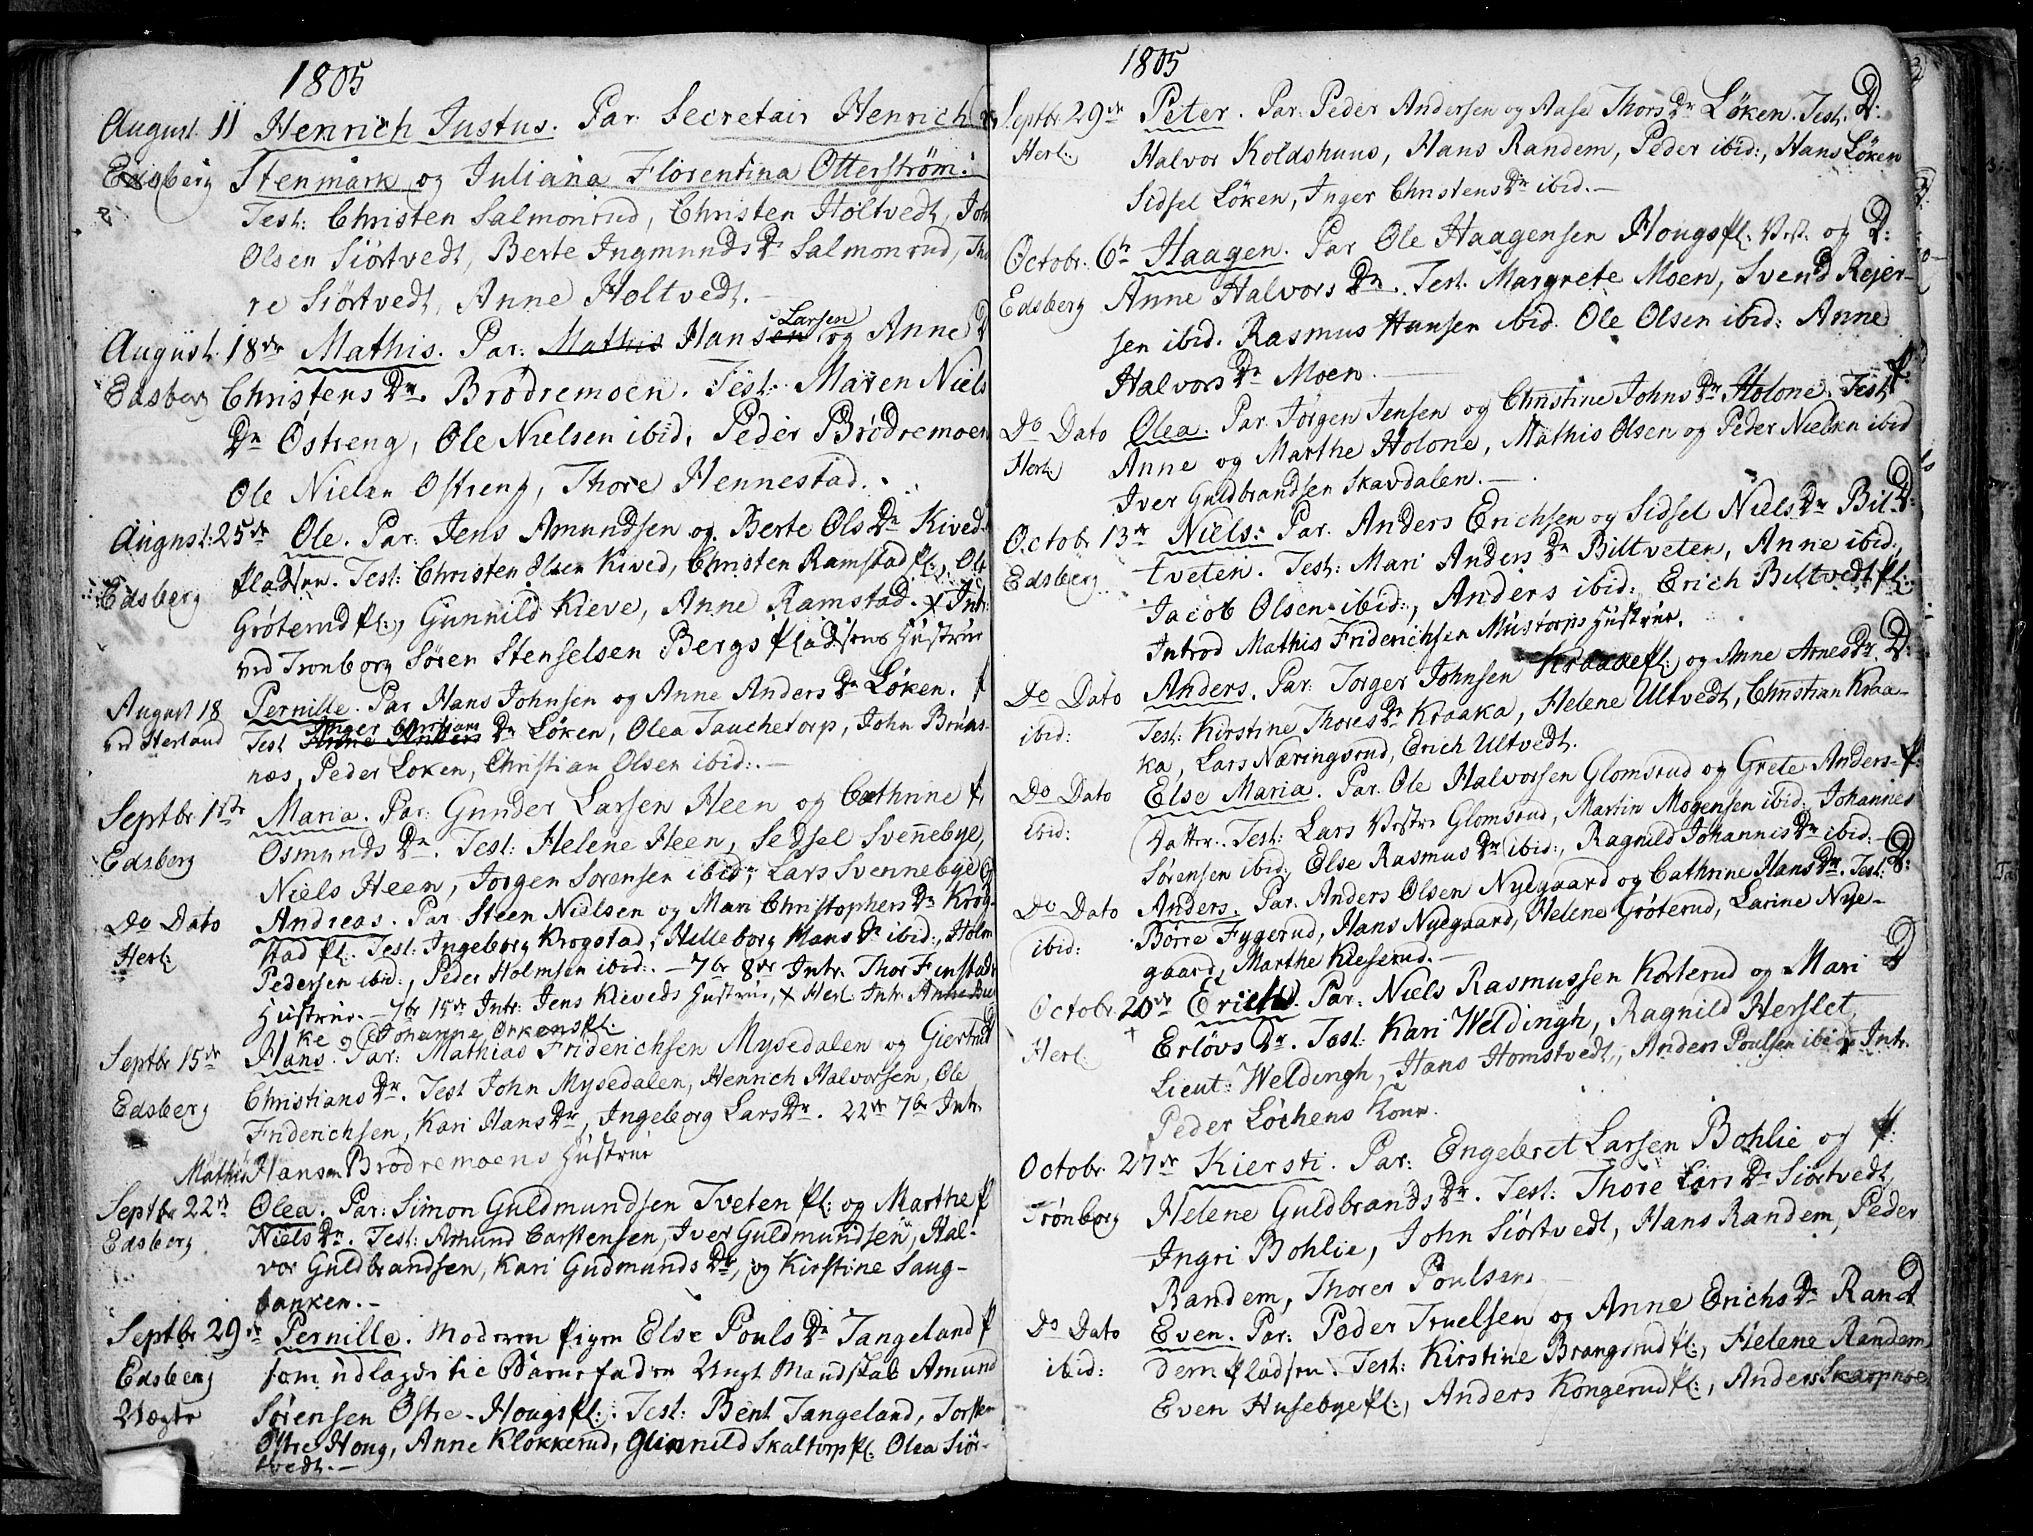 1805
August. 11 Henrich Justus. Par: Secretair Henrich
Edsberg Stenmark og Juliana Florentina Otterstrøm.
Test: Christen Salmonrud, Christen Holtvedt, Joh
Olsen Siørtvedt, Berte Ingmunds Dr Salmonrud, Tho
re Siørtvedt, Anne Holtvedt.
August. 18de Mathis. Par: Mathis Hansen Larsen og Anne D
Edsberg Christens Dr. Brødremoen. Test: Maren Niels
Dr Østreng, Ole Nielsen ibid, Peder Brødremoen
Ole Nielsen Østreng, Thore Hennestad.
August: 25de Ole. Par: Jens Amundsen og Berte Ols Dr Kived-
Edsberg pladsen. Test: Christen Olsen Kived, Christen Ramstad pl:, Ole
Grøterud pl:, Gunnild Kieve, Anne Ramstad. x Intr:
ved Tronborg Søren Stenselsen Bergs pladsens Hustrue
August 18 Pernille. Par Hans Johnsen og Anne Anders Dr Løken. p
ved Herland Test Anne Anders Inger Christians Dr Løken, Olea Tauchetorp, John Brunæs-
næs, Peder Løken, Christian Olsen ibid:.
Septbr. 1ste Maria. Par: Gunder Larsen Heen og Cathrine p
Edsberg Osmunds Dr. Test: Helene Heen, Sedsel Svennebye,
Niels Heen, Jørgen Sørensen ibid, Lars Svennebye
Do Dato Andreas. Par Steen Nielsen og Mari Christophers Dr Krog-
Herl: stad pl. Test: Ingeborg Krogstad, Helleborg Hans Dr ibid:, Holm
Pedersen ibid:, Peder Holmsen ibid:. - 7br 8de Intr. Thor Finstads
Hustrue. - 7br 15de Intr: Jens Kieveds Hustrue, x Herl: Intr
ke og Johanne Orkenspl.
Septbr 15de Hans. Par: Mathias Friderichsen Mysedalen og Giertrud
Edsberg Christians Dr. Test John Mysedalen, Henrich Halvorsen, Ole
Friderichsen, Kari Hans Dr, Ingeborg Lars Dr. 22de 7br Intr.
Mathis Hansen Brødremoens Hustrue
Septbr 22de Olea. Par: Simon Guldmundsen Tveten pl: og Marthe p
Edsberg Niels Dr. Test: Amund Carstensen, Iver Guldmundsen, Hal-
vor Guldbrandsen, Kari Gudmunds Dr, og Kirstine Saug-
banken.-
Septbr 29de Pernille. Moderen pigen Else Pouls Dr Tangeland p
Edsberg som udlagde til Barnefader Ungt Mandskab Amund
Uægte Sørensen Østre-Hougs pl:. Test: Bent Tangeland, Torsten
Østre Houg, Anne Kløkkerud, Gunnild Skaltorp pl. Olea Siør-
tvedt.-
1805
Septbr. 29de Peter. Par: Peder Andersen og Aase Thors Dr Løken. Test. D:
Herl: Halvor Koldshuus, Hans Randem, Peder ibid:, Hans Løken
Sidsel Løken, Inger Christens Dr ibid.-
Octobr. 6te Haagen. Par Ole Haagensen Hougs pl: Vest. og D:
Edsberg Anne Halvors Dr. Test. Margrete Moen, Svend Rejer-
sen ibid. Rasmus Hansen ibid. Ole Olsen ibid: Anne
Halvors Dr Moen.
Do Dato Olea. Par. Jørgen Jensen og Christine Johns Dr Holone. Test p
Herl: Anne og Marthe Holone, Mathis Olsen og Peder Nielsen ibid
Iver Guldbrandsen Skavdalen.-
Octobr 13de Niels: Par. Anders Erichsen og Sidsel Niels Dr Bil- D:
Edsberg tveten. Test: Mari Anders Dr Biltveten, Anne ibid:,
Jacob Olsen ibid:, Anders ibid: Erich Biltvedt pl:
Introd Mathis Friderichsen Mustorps Hustrue.
Do Dato Anders. Par: Torger Johnsen Kraakepl: og Anne Arnes Dr. D:
ibid: Test: Kirstine Thores Dr Kraaka, Helene Ultvedt, Christian Kraa-
ka, Lars Næringsrud, Erich Ultvedt.
Do Dato Else Maria. Par. Ole Halvorsen Glomsrud og Grete Anders- p:
ibid: Datter. Test: Lars Vestre Glomsrud, Martin Mogensen ibid:, Johannes
Sørensen ibid:, Else Rasmus Dr ibid:, Ragnild Johannis Dr ibid:-
Do Dato Anders. Par. Anders Olsen Nyegaard og Cathrine Hans Dr. Test: D:
ibid: Børre Fygerud, Hans Nyegaard, Helene Grøterud, Larine Nye-
gaard, Marthe Kieserud.-
Octobr. 20de Erich. Par: Niels Rasmussen Korterud og Mari D
Herl: Erløvs Dr. Test: Kari Weldingh, Ragnild Herslet,
Lieut: Weldingh, Hans Homstvedt, Anders Poulsen ibid: Intr.
Peder Løchens Kone.
Octobr. 27de Kiersti. Par: Engebret Larsen Bohlie og p:
Trønborg Helene Guldbrands Dr. Test: Thore Lars Dr Siørtvedt,
Ingri Bohlie, John Siørtvedt, Hans Randem, Peder
Randem, Thorer Poulsen
Do Dato Even. Par: Peder Truelsen og Anne Erichs Dr Ran D
ibid: dem pladsen. Test: Kirstine Brangsrud pl:, Helene Randem
Even Husebye pl:, Anders Kongerud pl:, Anders Skarpnoe